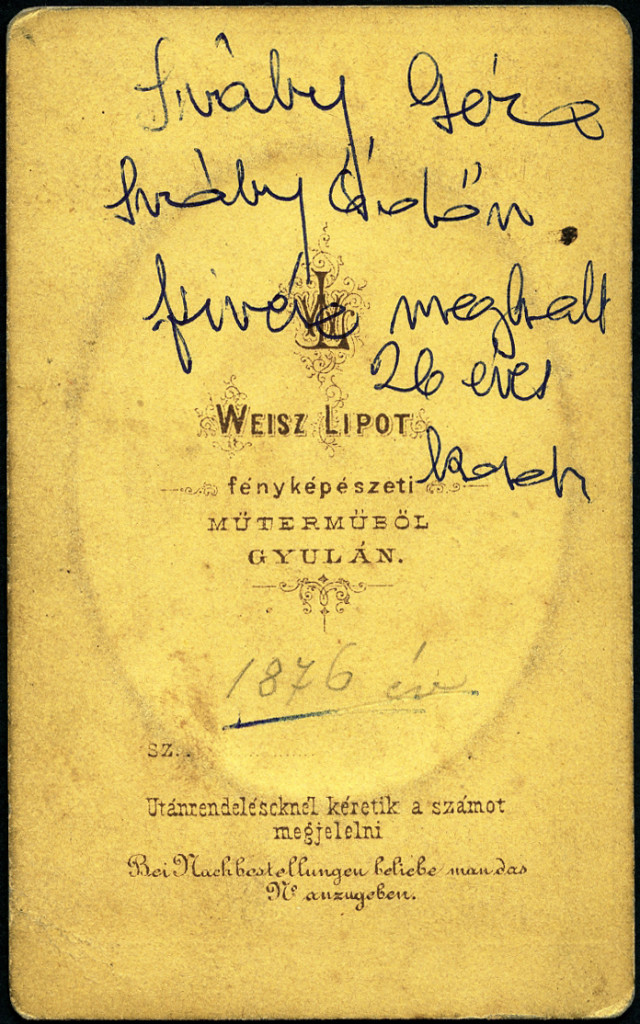 Sváby Géza
Sváby Ödön
fivére meghalt
26 éves
WEISZ LIPOT
fényképészeti
MŰTERMÜBŐL
GYULÁN.
1876 év
SZ.
Utánrendeléseknél kéretik a számot
megjelelni
Bei Nachbestellungen beliebe man das
No anzugeben.